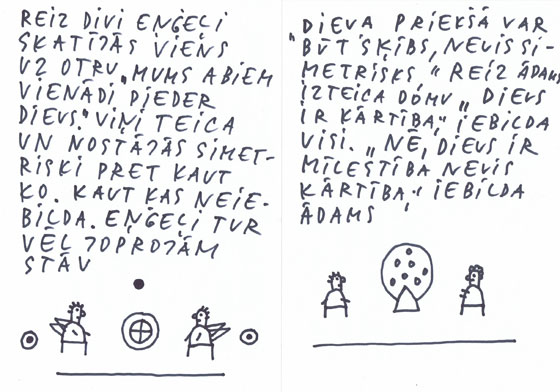 REIZ DIVI EŅĢEĻI
SKATĪJĀS VIENS
UZ OTRU „MUMS ABIEM
VIENĀDI PIEDER
DIEVS." VIŅI TEICA
UN NOSTĀJĀS SIMET-
RISKI PRET KAUT
KO. KAUT KAS NEIE-
BILDA. EŅĢEĻI TUR
VĒL JOPROJĀM
STĀV
„DIEVA PRIEKŠĀ VAR
BŪT ŠĶĪBS, NEVIS SI-
METRISKS" REIZ ĀDAMS
IZTEICA DOMU „DIEVS
IR KĀRTĪBA," IEBILDA
VISI. „NĒ, DIEVS IR
MĪLESTĪBA NEVIS
KĀRTĪBA," IEBILDA
ĀDAMS